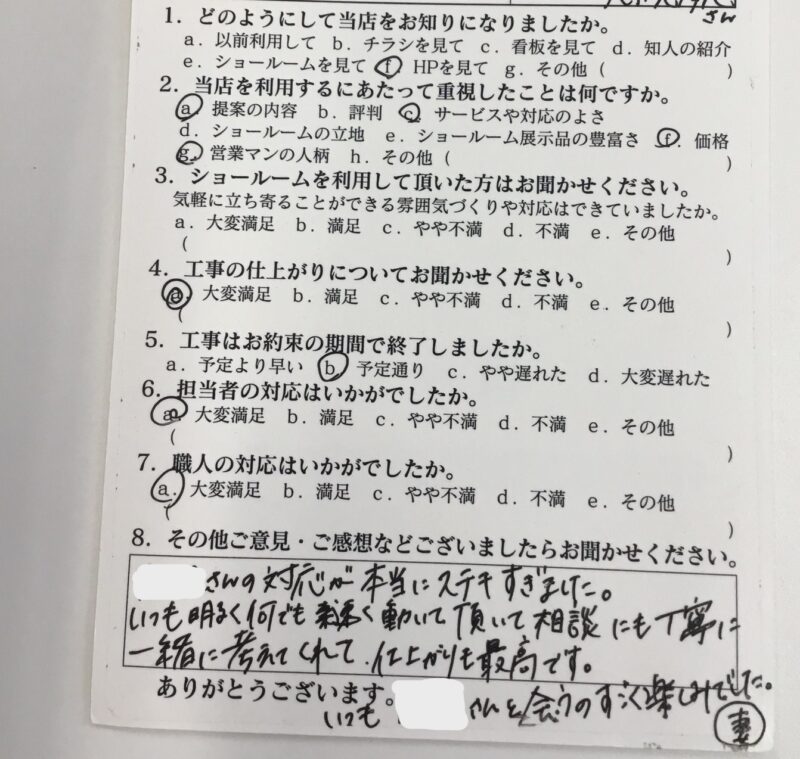 1．どのようにして当店をお知りになりましたか。
a．以前利用して b．チラシを見て c．看板を見て d．知人の紹介
e．ショールームを見て f．HPを見て g．その他（　　　）
2．当店を利用するにあたって重視したことは何ですか。
a．提案の内容 b．評判 c．サービスや対応のよさ
d．ショールームの立地 e．ショールーム展示品の豊富さ f．価格
g．営業マンの人柄 h．その他（　　　）
3．ショールームを利用して頂いた方はお聞かせください。
気軽に立ち寄ることができる雰囲気づくりや対応はできていましたか。
a．大変満足 b．満足 c．やや不満 d．不満 e．その他
（　　　）
4．工事の仕上がりについてお聞かせください。
a．大変満足 b．満足 c．やや不満 d．不満 e．その他
（　　　）
5．工事はお約束の期間で終了しましたか。
a．予定より早い b．予定通り c．やや遅れた d．大変遅れた
6．担当者の対応はいかがでしたか。
a．大変満足 b．満足 c．やや不満 d．不満 e．その他
（　　　）
7．職人の対応はいかがでしたか。
a．大変満足 b．満足 c．やや不満 d．不満 e．その他
（　　　）
8．その他ご意見・ご感想などございましたらお聞かせください。
さんの対応が本当にステキすぎました。
いつも明るく何でも速く動いて頂いて相談にも丁寧に
一緒に考えてくれて、仕上がりも最高です。
ありがとうございます。
いつも さんと会うのすごく楽しみでした。
妻